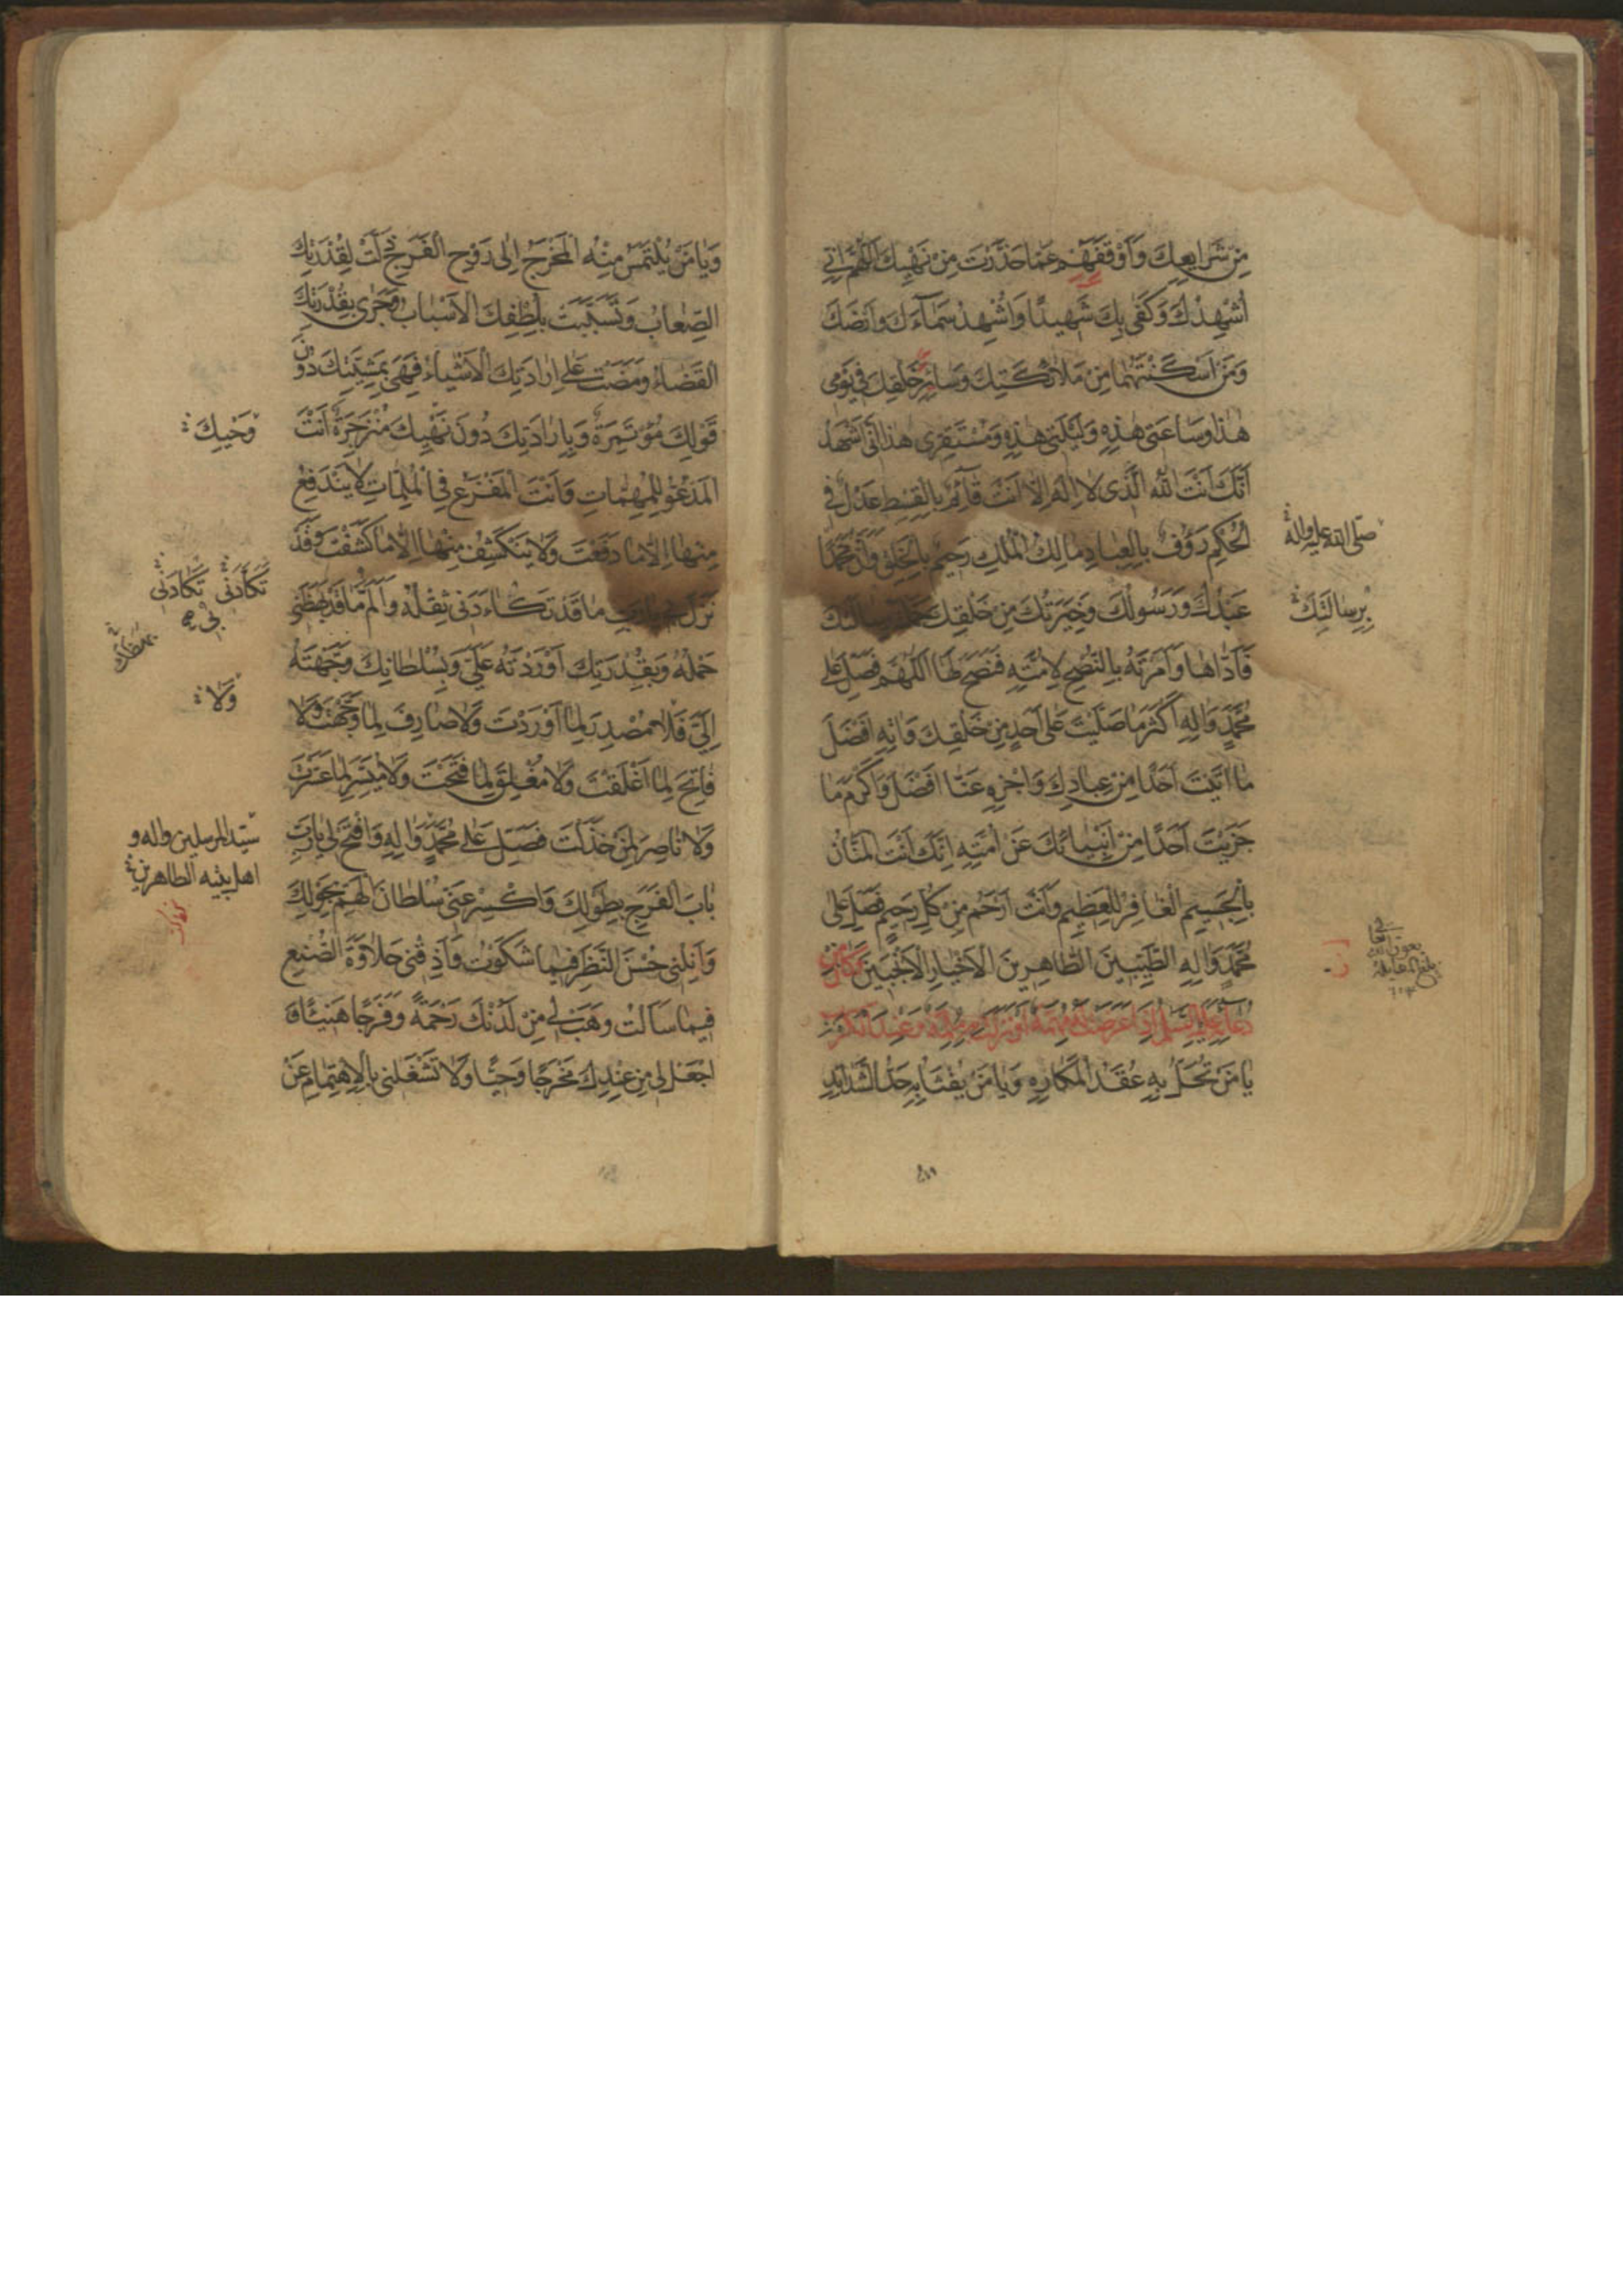 مِنْ شَرَايِعِكَ وَأَوْقَفَهُمْ عَمَّا حَذَّرْتَ مِنْ نَهْيِكَ اَللّٰهُمَّ اِنّى
اُشْهِدُكَ وَكَفٰى بِكَ شَهِيدًا وَاُشْهِدُ سَمَاءَكَ وَاَرْضَكَ
وَمَنْ اَسْكَنْتَهُمَا مِنْ مَلَائِكَتِكَ وَسَائِرِ خَلْقِكَ فِى يَوْمِى
هٰذَا وَسَاعَتِى هٰذِهِ وَلَيْلَتِى هٰذِهِ وَمُسْتَقَرِّى هٰذَا اَنِّى اَشْهَدُ
اَنَّكَ اَنْتَ اللّٰهُ الَّذِى لَا اِلٰهَ اِلَّا اَنْتَ قَائِمٌ بِالْقِسْطِ عَدْلٌ فِى
الْحُكْمِ رَؤُفٌ بِالْعِبَادِ مَالِكُ الْمُلْكِ رَحِيمٌ بِالْخَلْقِ وَاَنَّ مُحَمَّدًا
عَبْدُكَ وَرَسُولُكَ وَخِيَرَتُكَ مِنْ خَلْقِكَ حَمَّلْتَهُ رِسَالَتَكَ
فَاَدَّاهَا وَاَمَرْتَهُ بِالنُّصْحِ لِاُمَّتِهِ فَنَصَحَ لَهَا اَللّٰهُمَّ فَصَلِّ عَلٰى
مُحَمَّدٍ وَاٰلِهِ اَكْثَرَ مَا صَلَّيْتَ عَلٰى اَحَدٍ مِنْ خَلْقِكَ وَاٰتِهِ اَفْضَلَ
مَا اٰتَيْتَ اَحَدًا مِنْ عِبَادِكَ وَاجْزِهِ عَنَّا اَفْضَلَ وَاَكْرَمَ مَا
جَزَيْتَ اَحَدًا مِنْ اَنْبِيَائِكَ عَنْ اُمَّتِهِ اِنَّكَ اَنْتَ الْمَنَّانُ
بِالْجَسِيمِ الْغَافِرُ لِلْعَظِيمِ وَاَنْتَ اَرْحَمُ مِنْ كُلِّ رَحِيمٍ فَصَلِّ عَلٰى
مُحَمَّدٍ وَاٰلِهِ الطَّيِّبِينَ الطَّاهِرِينَ الْاَخْيَارِ الْاَنْجَبِينَ وَكَانَ مِنْ
دُعَائِهِ عَلَيْهِ السَّلَامُ اِذَا عَرَضَتْ لَهُ مُهِمَّةٌ اَوْ نَزَلَتْ بِهِ مُلِمَّةٌ وَعِنْدَ الْكَرْبِ
يَا مَنْ تُحَلُّ بِهِ عُقَدُ الْمَكَارِهِ وَيَا مَنْ يُفْثَأُ بِهِ حَدُّ الشَّدَائِدِ
صلى الله عليه وآله
بِرِسَالَتِكَ
وَيَا مَنْ يُلْتَمَسُ مِنْهُ الْمَخْرَجُ اِلٰى رَوْحِ الْفَرَجِ ذَلَّتْ لِقُدْرَتِكَ
الصِّعَابُ وَتَسَبَّبَتْ بِلُطْفِكَ الْاَسْبَابُ وَجَرٰى بِقُدْرَتِكَ
الْقَضَاءُ وَمَضَتْ عَلٰى اِرَادَتِكَ الْاَشْيَاءُ فَهِىَ بِمَشِيَّتِكَ دُونَ
قَوْلِكَ مُؤْتَمِرَةٌ وَبِاِرَادَتِكَ دُونَ نَهْيِكَ مُنْزَجِرَةٌ اَنْتَ
الْمَدْعُوُّ لِلْمُهِمَّاتِ وَاَنْتَ الْمَفْزَعُ فِى الْمُلِمَّاتِ لَا يَنْدَفِعُ
مِنْهَا اِلَّا مَا دَفَعْتَ وَلَا يَنْكَشِفُ مِنْهَا اِلَّا مَا كَشَفْتَ وَقَدْ
نَزَلَ بِى يَا رَبِّ مَا قَدْ تَكَاءَدَنِى ثِقْلُهُ وَاَلَمَّ بِى مَا قَدْ بَهَظَنِى
حَمْلُهُ وَبِقُدْرَتِكَ اَوْرَدْتَهُ عَلَىَّ وَبِسُلْطَانِكَ وَجَّهْتَهُ
اِلَىَّ فَلَا مُصْدِرَ لِمَا اَوْرَدْتَ وَلَا صَارِفَ لِمَا وَجَّهْتَ وَلَا
فَاتِحَ لِمَا اَغْلَقْتَ وَلَا مُغْلِقَ لِمَا فَتَحْتَ وَلَا مُيَسِّرَ لِمَا عَسَّرْتَ
وَلَا نَاصِرَ لِمَنْ خَذَلْتَ فَصَلِّ عَلٰى مُحَمَّدٍ وَاٰلِهِ وَافْتَحْ لِى يَا رَبِّ
بَابَ الْفَرَجِ بِطَوْلِكَ وَاكْسِرْ عَنِّى سُلْطَانَ الْهَمِّ بِحَوْلِكَ
وَاَنِلْنِى حُسْنَ النَّظَرِ فِيمَا شَكَوْتُ وَاَذِقْنِى حَلَاوَةَ الصُّنْعِ
فِيمَا سَاَلْتُ وَهَبْ لِى مِنْ لَدُنْكَ رَحْمَةً وَفَرَجًا هَنِيئًا وَ
اجْعَلْ لِى مِنْ عِنْدِكَ مَخْرَجًا وَحِيًّا وَلَا تَشْغَلْنِى بِالْاِهْتِمَامِ عَنْ
وَحْيِكَ
تَكَأَّدَنِى تَكَادَنِى
بِى
وَلَا
سيّد المرسلين واله و
اهل بيته الطاهرين